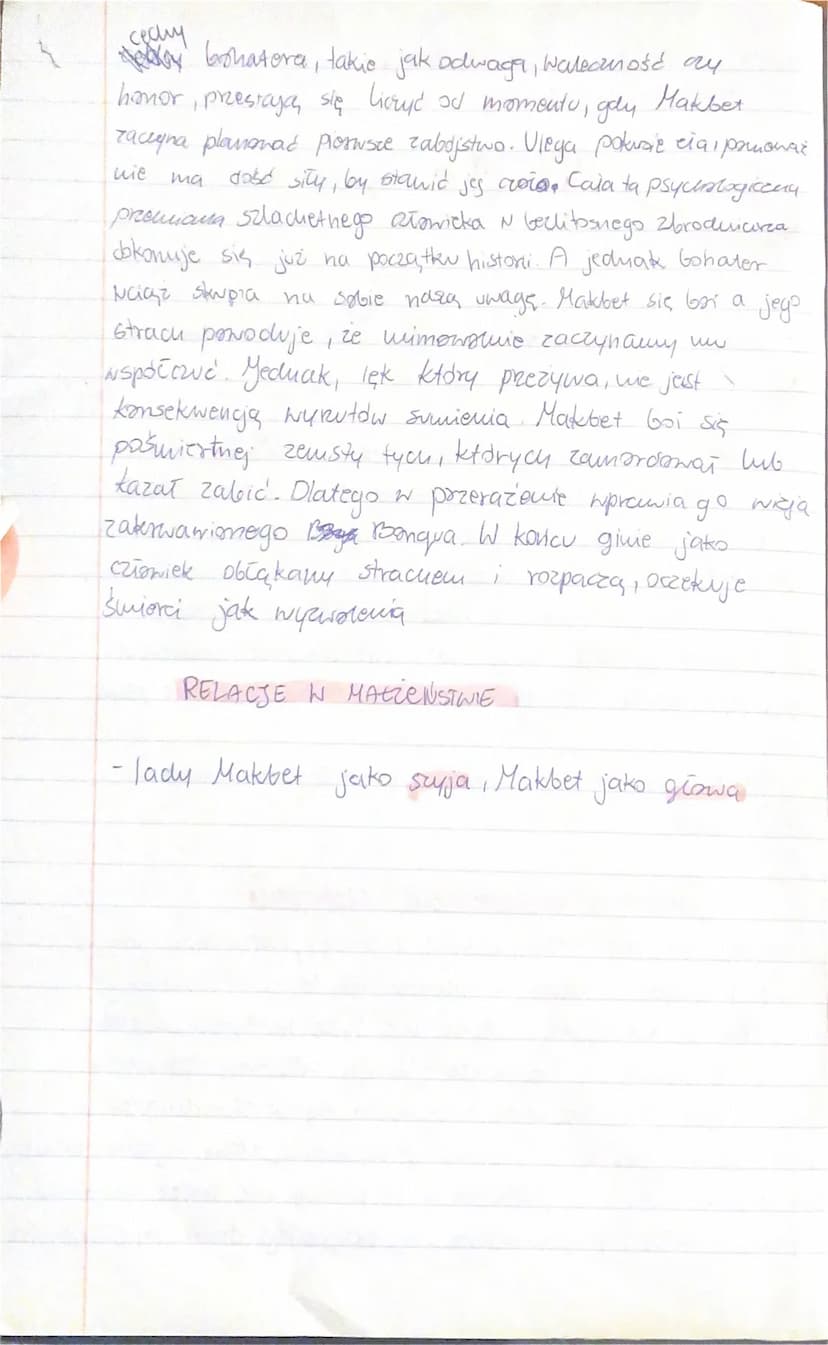 cechy
bohatera, takie jak odwaga, waleczność czy
honor, przestają się liczyć od momentu, gdy Makbet
zaczyna planować pierwsze zabójstwo. Ulega pokusie zła, ponieważ
nie ma dość siły, by stawić jej czoła. Cała ta psychologiczna
przemiana szlachetnego człowieka w bezlitosnego zbrodniarza
dokonuje się już na początku historii. A jednak bohater
wciąż skupia na sobie naszą uwagę. Makbet się boi a jego
strach powoduje, że mimowolnie zaczynamy mu
współczuć. Jednak, lęk który przeżywa, nie jest
konsekwencją wyrzutów sumienia. Makbet boi się
pośmiertnej zemsty tych, których zamordował lub
kazał zabić. Dlatego w przerażenie wprawia go wizja
zakrwawionego Banqua. W końcu ginie jako
człowiek obłąkany strachem i rozpaczą, oczekuje
śmierci jak wyzwolenia
RELACJE W MAŁŻEŃSTWIE
- lady Makbet jako szyja, Makbet jako głowa